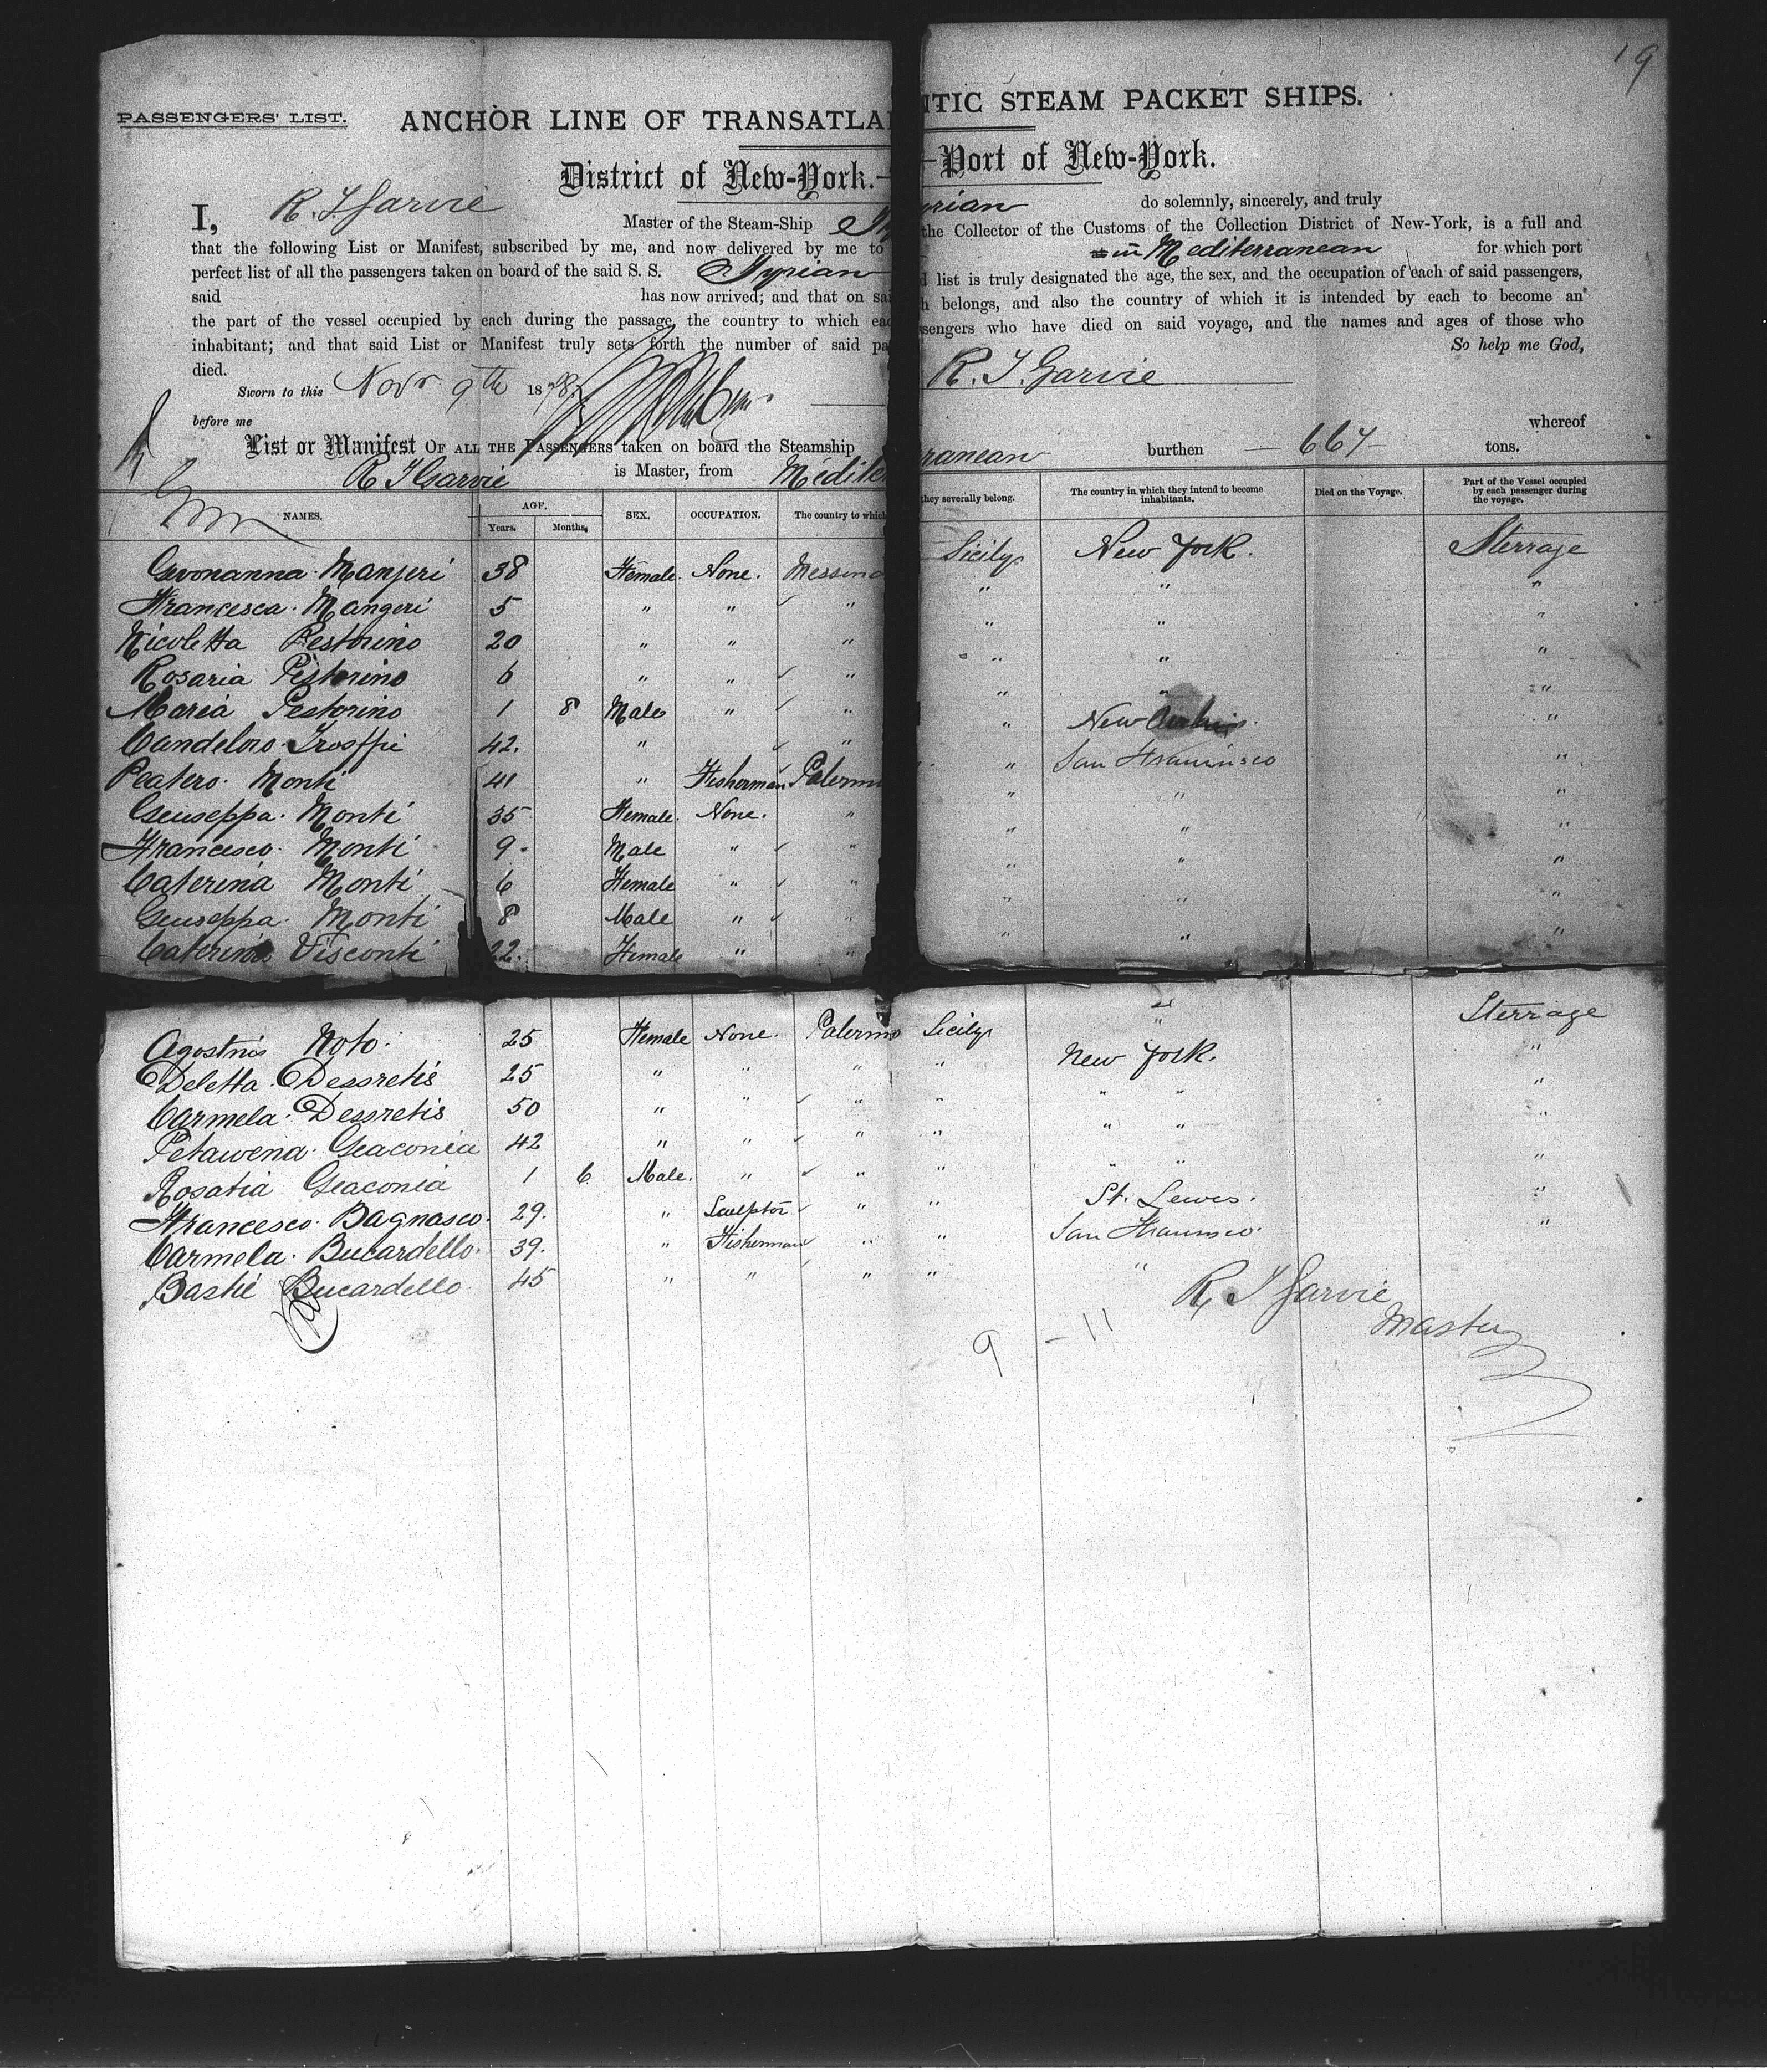 19
PASSENGERS' LIST. ANCHOR LINE OF TRANSATLA NTIC STEAM PACKET SHIPS.
District of New-York.— —Port of New-York.
I, R. T. Garvie Master of the Steam-Ship Ty yrian do solemnly, sincerely, and truly
that the following List or Manifest, subscribed by me, and now delivered by me to the Collector of the Customs of the Collection District of New-York, is a full and
perfect list of all the passengers taken on board of the said S. S. Tyrian in Mediterranean for which port
said has now arrived; and that on sai d list is truly designated the age, the sex, and the occupation of each of said passengers,
the part of the vessel occupied by each during the passage, the country to which eac h belongs, and also the country of which it is intended by each to become an
inhabitant; and that said List or Manifest truly sets forth the number of said pa ssengers who have died on said voyage, and the names and ages of those who
died. So help me God,
Sworn to this Novr 9th 1878 R. T. Garvie
before me whereof
List or Manifest OF ALL THE PASSENGERS taken on board the Steamship burthen 667 tons.
R T Garvie is Master, from Mediter ranean
NAMES. AGE. Years. Months. SEX. OCCUPATION. The country to which they severally belong. The country in which they intend to become inhabitants. Died on the Voyage. Part of the Vessel occupied by each passenger during the voyage.
Gvonanna Manjeri 38 Female. None. Messina Sicily New York. Sterrage
Francesca Mangeri 5 " " " " " "
Nicoletta Pestorino 20 " " " " " "
Rosaria Pistorino 6 " " " " " "
Maria Pestorino 1 8 Male " " " " "
Candeloro 42. " " " New "
Peatero Monti 41 " Fisherman Palermo " San Francisco "
Geuseppa Monti 35 Female. None. " " " "
Francesco Monti 9 Male " " " " "
Caterina Monti 6 Female " " " " "
Geuseppa Monti 8 Male " " " " "
Caterina Visconti 22. Female " " " " "
Agostnis Noto. 25 Female None. Palermo Sicily " Sterrage
Deletta Dessretis 25 " " " " New York. "
Carmela Dessretis 50 " " " " " " "
Petawena Geaconia 42 " " " " " " "
Rosatia Geaconia 1 6 Male. " " " " " "
Francesco Bagnasco 29. " Sculptor " " St. Lewis. "
Carmela Bucardello 39. " Fisherman " " San Francisco "
Bastie Bucardello 45 " " " " "
R T Garvie
Master
9 - 11